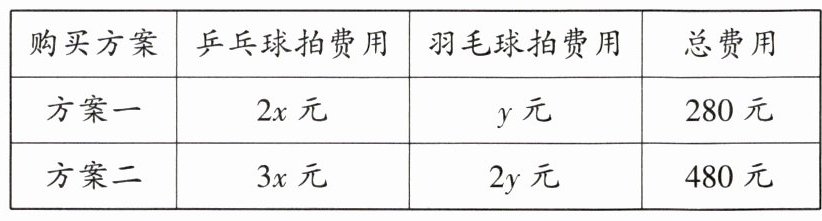 购买方案 乒乓球拍费用 羽毛球拍费用 总费用
方案一 2x 元 y 元 280 元
方案二 3x 元 2y 元 480 元